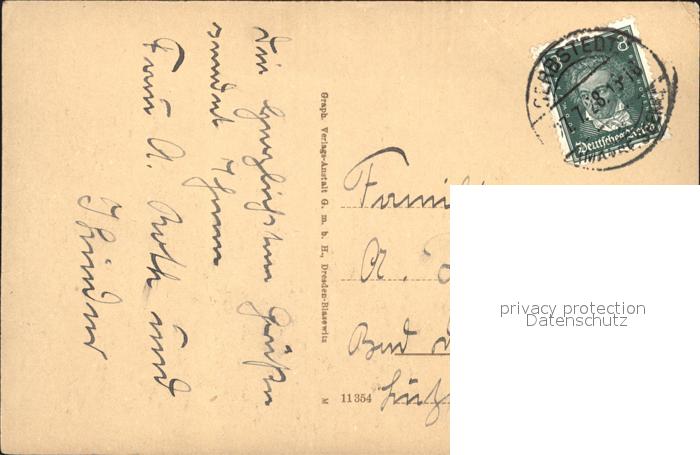 Die herzlichsten Grüße
sendet Ihnen
Frau A. Roth und
Kinder
Graph. Verlags-Anstalt G. m. b. H., Dresden-Blasewitz
M 11354
GERBSTEDT
8
Deutsches Reich
Familie
A.
Bad
privacy protection
Datenschutz